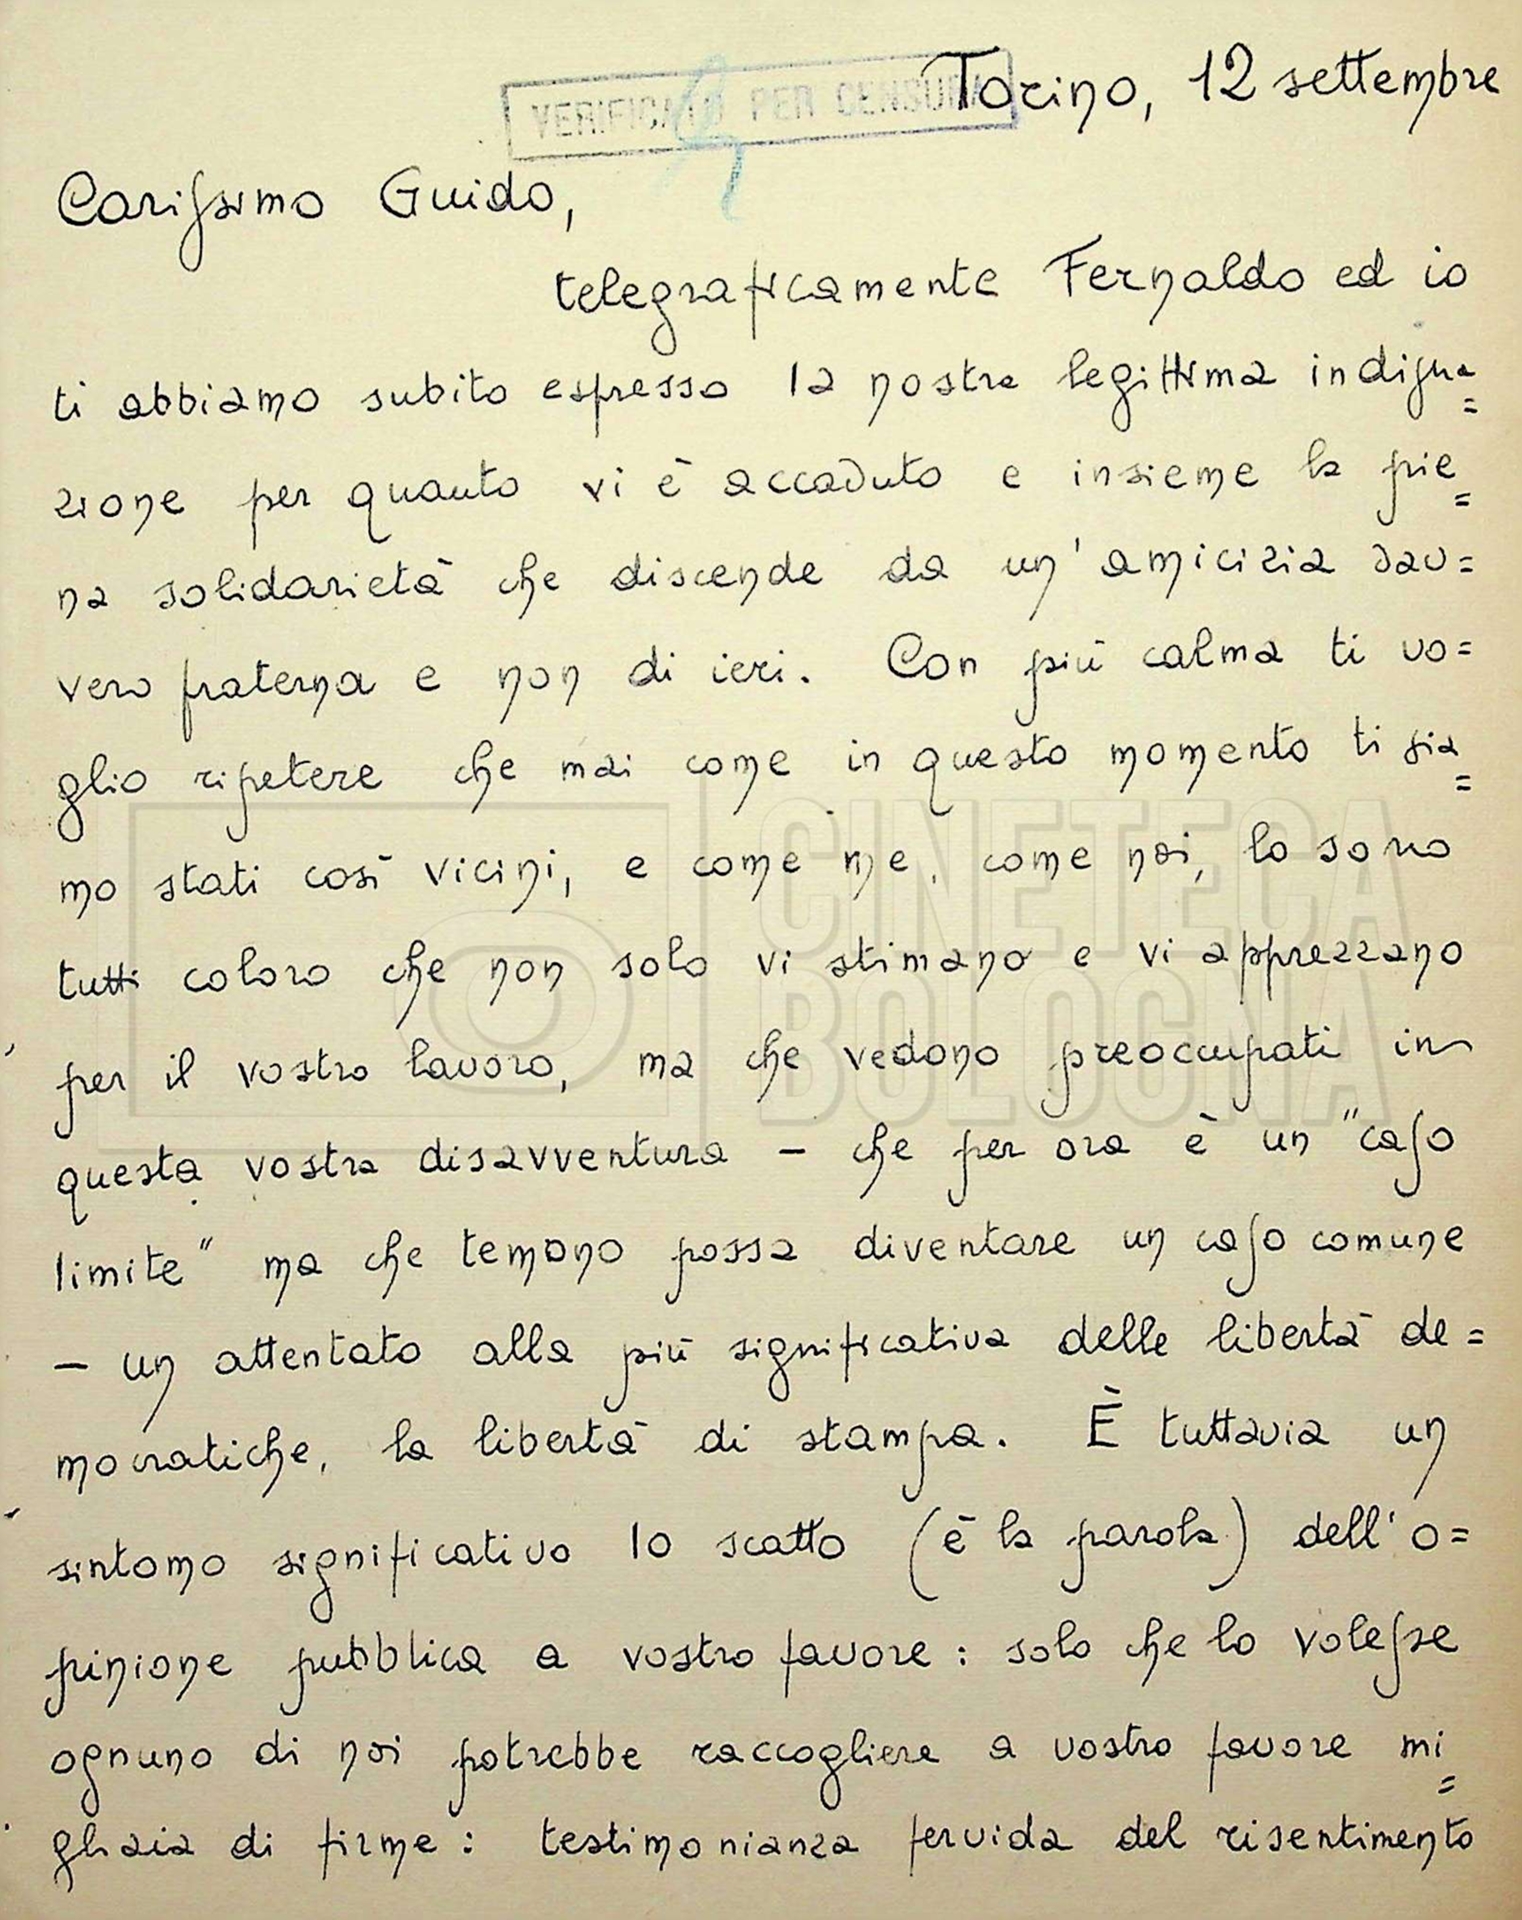 Torino, 12 settembre
VERIFICATO PER CENSURA
Carissimo Guido,
telegraficamente Fernaldo ed io
ti abbiamo subito espresso la nostra legittima indigna=
zione per quanto vi è accaduto e insieme la pie=
na solidarietà che discende da un'amicizia dav=
vero fraterna e non di ieri. Con più calma ti vo=
glio ripetere che mai come in questo momento ti sia=
mo stati così vicini, e come me, come noi, lo sono
CINETECA
tutti coloro che non solo vi stimano e vi apprezzano
BOLOGNA
per il vostro lavoro, ma che vedono preoccupati in
questa vostra disavventura - che per ora è un "caso
limite" ma che temono possa diventare un caso comune
- un attentato alla più significativa delle libertà de=
mocratiche, la libertà di stampa. È tuttavia un
sintomo significativo lo scatto (è la parola) dell'o=
pinione pubblica a vostro favore: solo che lo volesse
ognuno di noi potrebbe raccogliere a vostro favore mi=
gliaia di firme: testimonianza fervida del risentimento